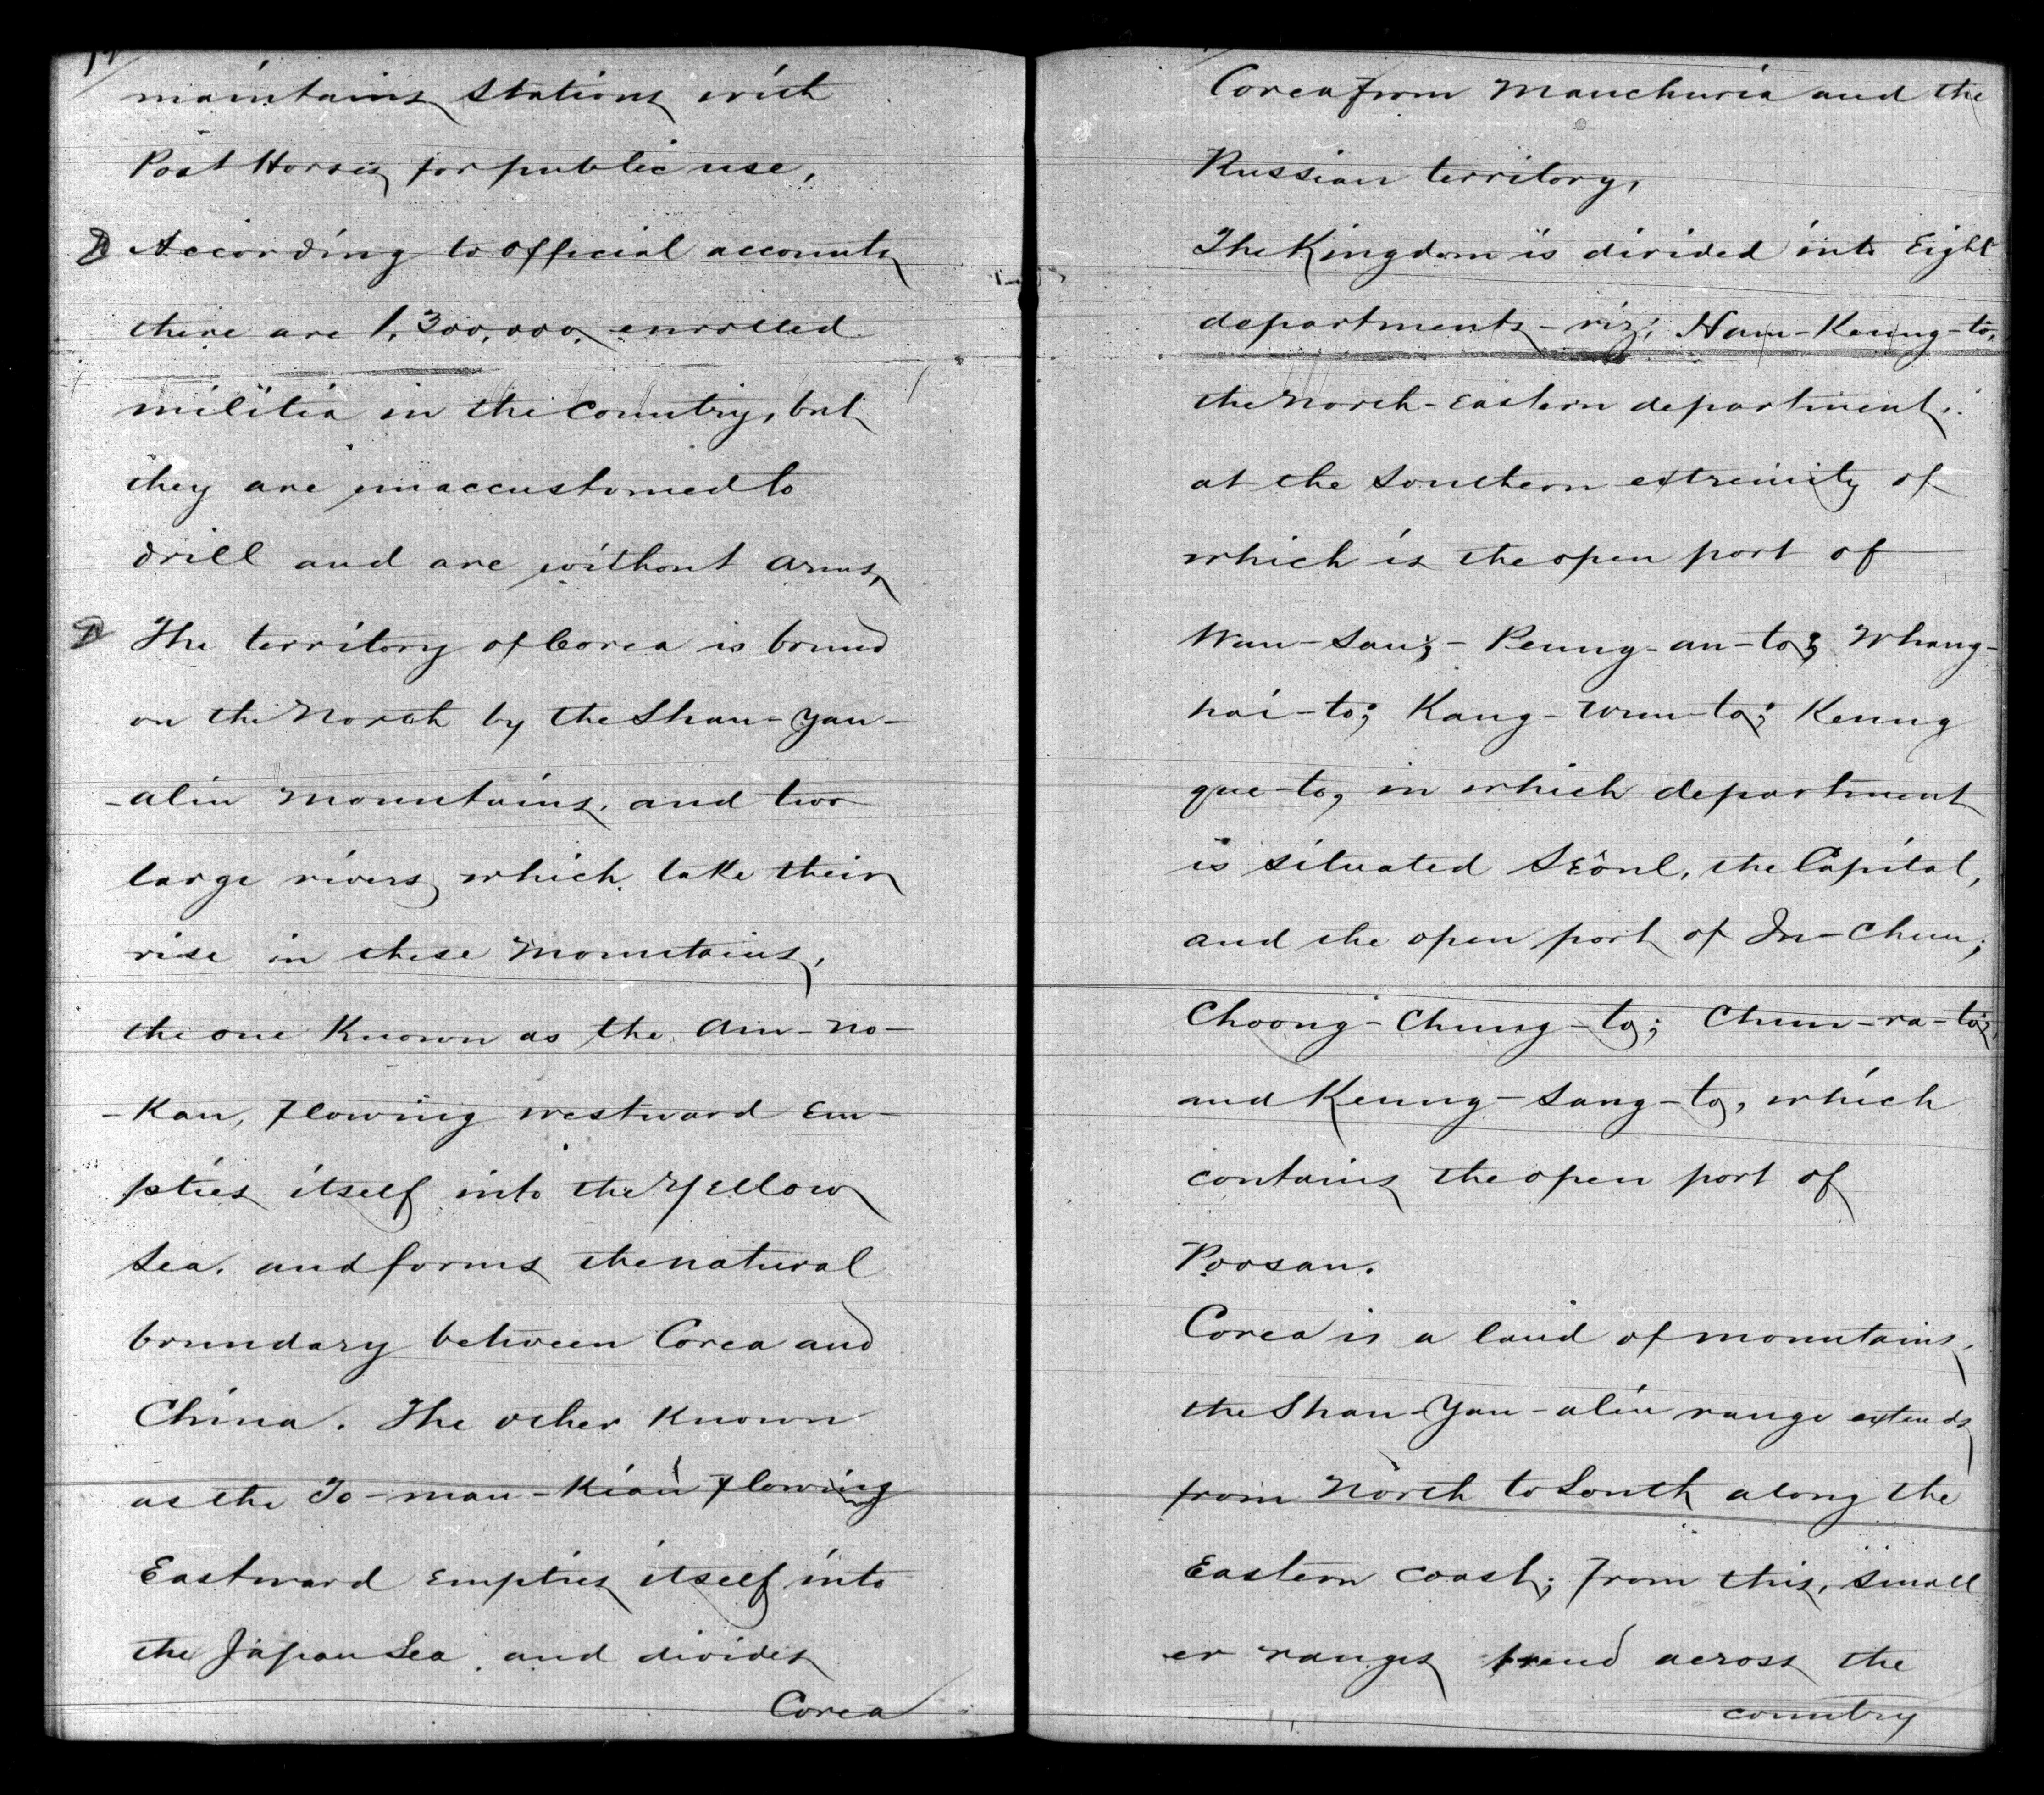 maintains stations with
Post Horses for public use,
According to official accounts
there are 1,300,000, enrolled
militia in the country, but
they are unaccustomed to
drill and are without arms,
The territory of Corea is bound
on the North by the Shan-Yan-
-alin Mountains, and two
large rivers which take their
rise in these Mountains,
the one Known as the Am-no-
-Kan, flowing westward Em-
pties itself into the Yellow
Sea, and forms the natural
boundary between Corea and
China. The other Known
as the To-man-Kian flowing
Eastward Empties itself into
the Japan Sea, and divides
Corea
Corea from Manchuria and the
Russian territory,
The Kingdom is divided into Eight
departments - viz; Ham-Keung-to,
the North-Eastern department,
at the Southern extremity of
which is the open port of
Wun-San; - Peung-an-to; Whang-
hai-to; Kang-wun-to; Keung
que-to, in which department
is situated SEôul, the Capital,
and the open port of In-Chun;
Choong-Chung-to; Chun-ra-to;
and Keung-Sang-to, which
contains the open port of
Poosan.
Corea is a land of mountains,
the Shan-Yan-alin range extends
from North to South along the
Eastern coast; from this, small
er ranges trend across the
country